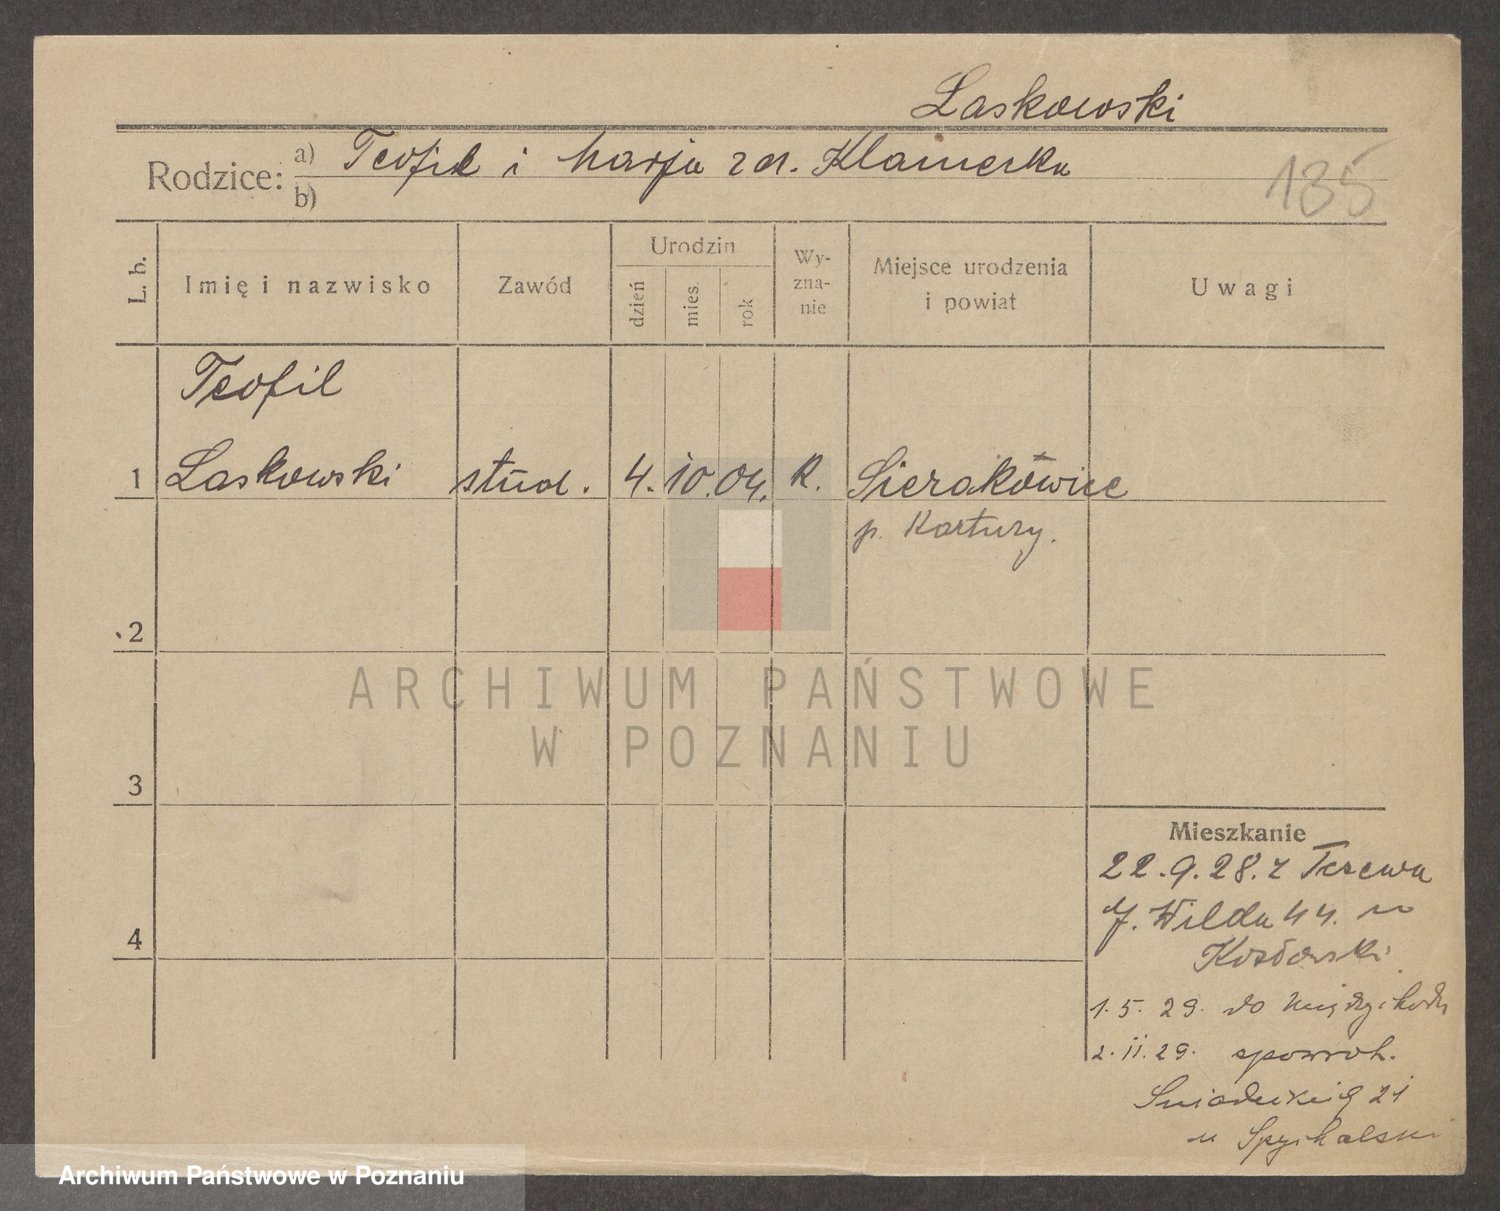 Laskowski
Rodzice: a) Teofil i Marja z d. Klamerka
b)
135
L. b. Imię i nazwisko Zawód Urodzin dzień mies. rok Wy-zna-nie Miejsce urodzenia i powiat Uwagi
Teofil
1 Laskowski stud. 4. 10. 04. K. Sierakówice
p. Kartuzy.
2
3
4
Mieszkanie
22.9.28. z Tczewa
G. Wilda 44. u
Kozłowski
1. 5. 29. do Międzychodu
2. 11. 29. spowrot.
Śniadeckich 21
u Spychalski
ARCHIWUM PAŃSTWOWE
W POZNANIU
Archiwum Państwowe w Poznaniu